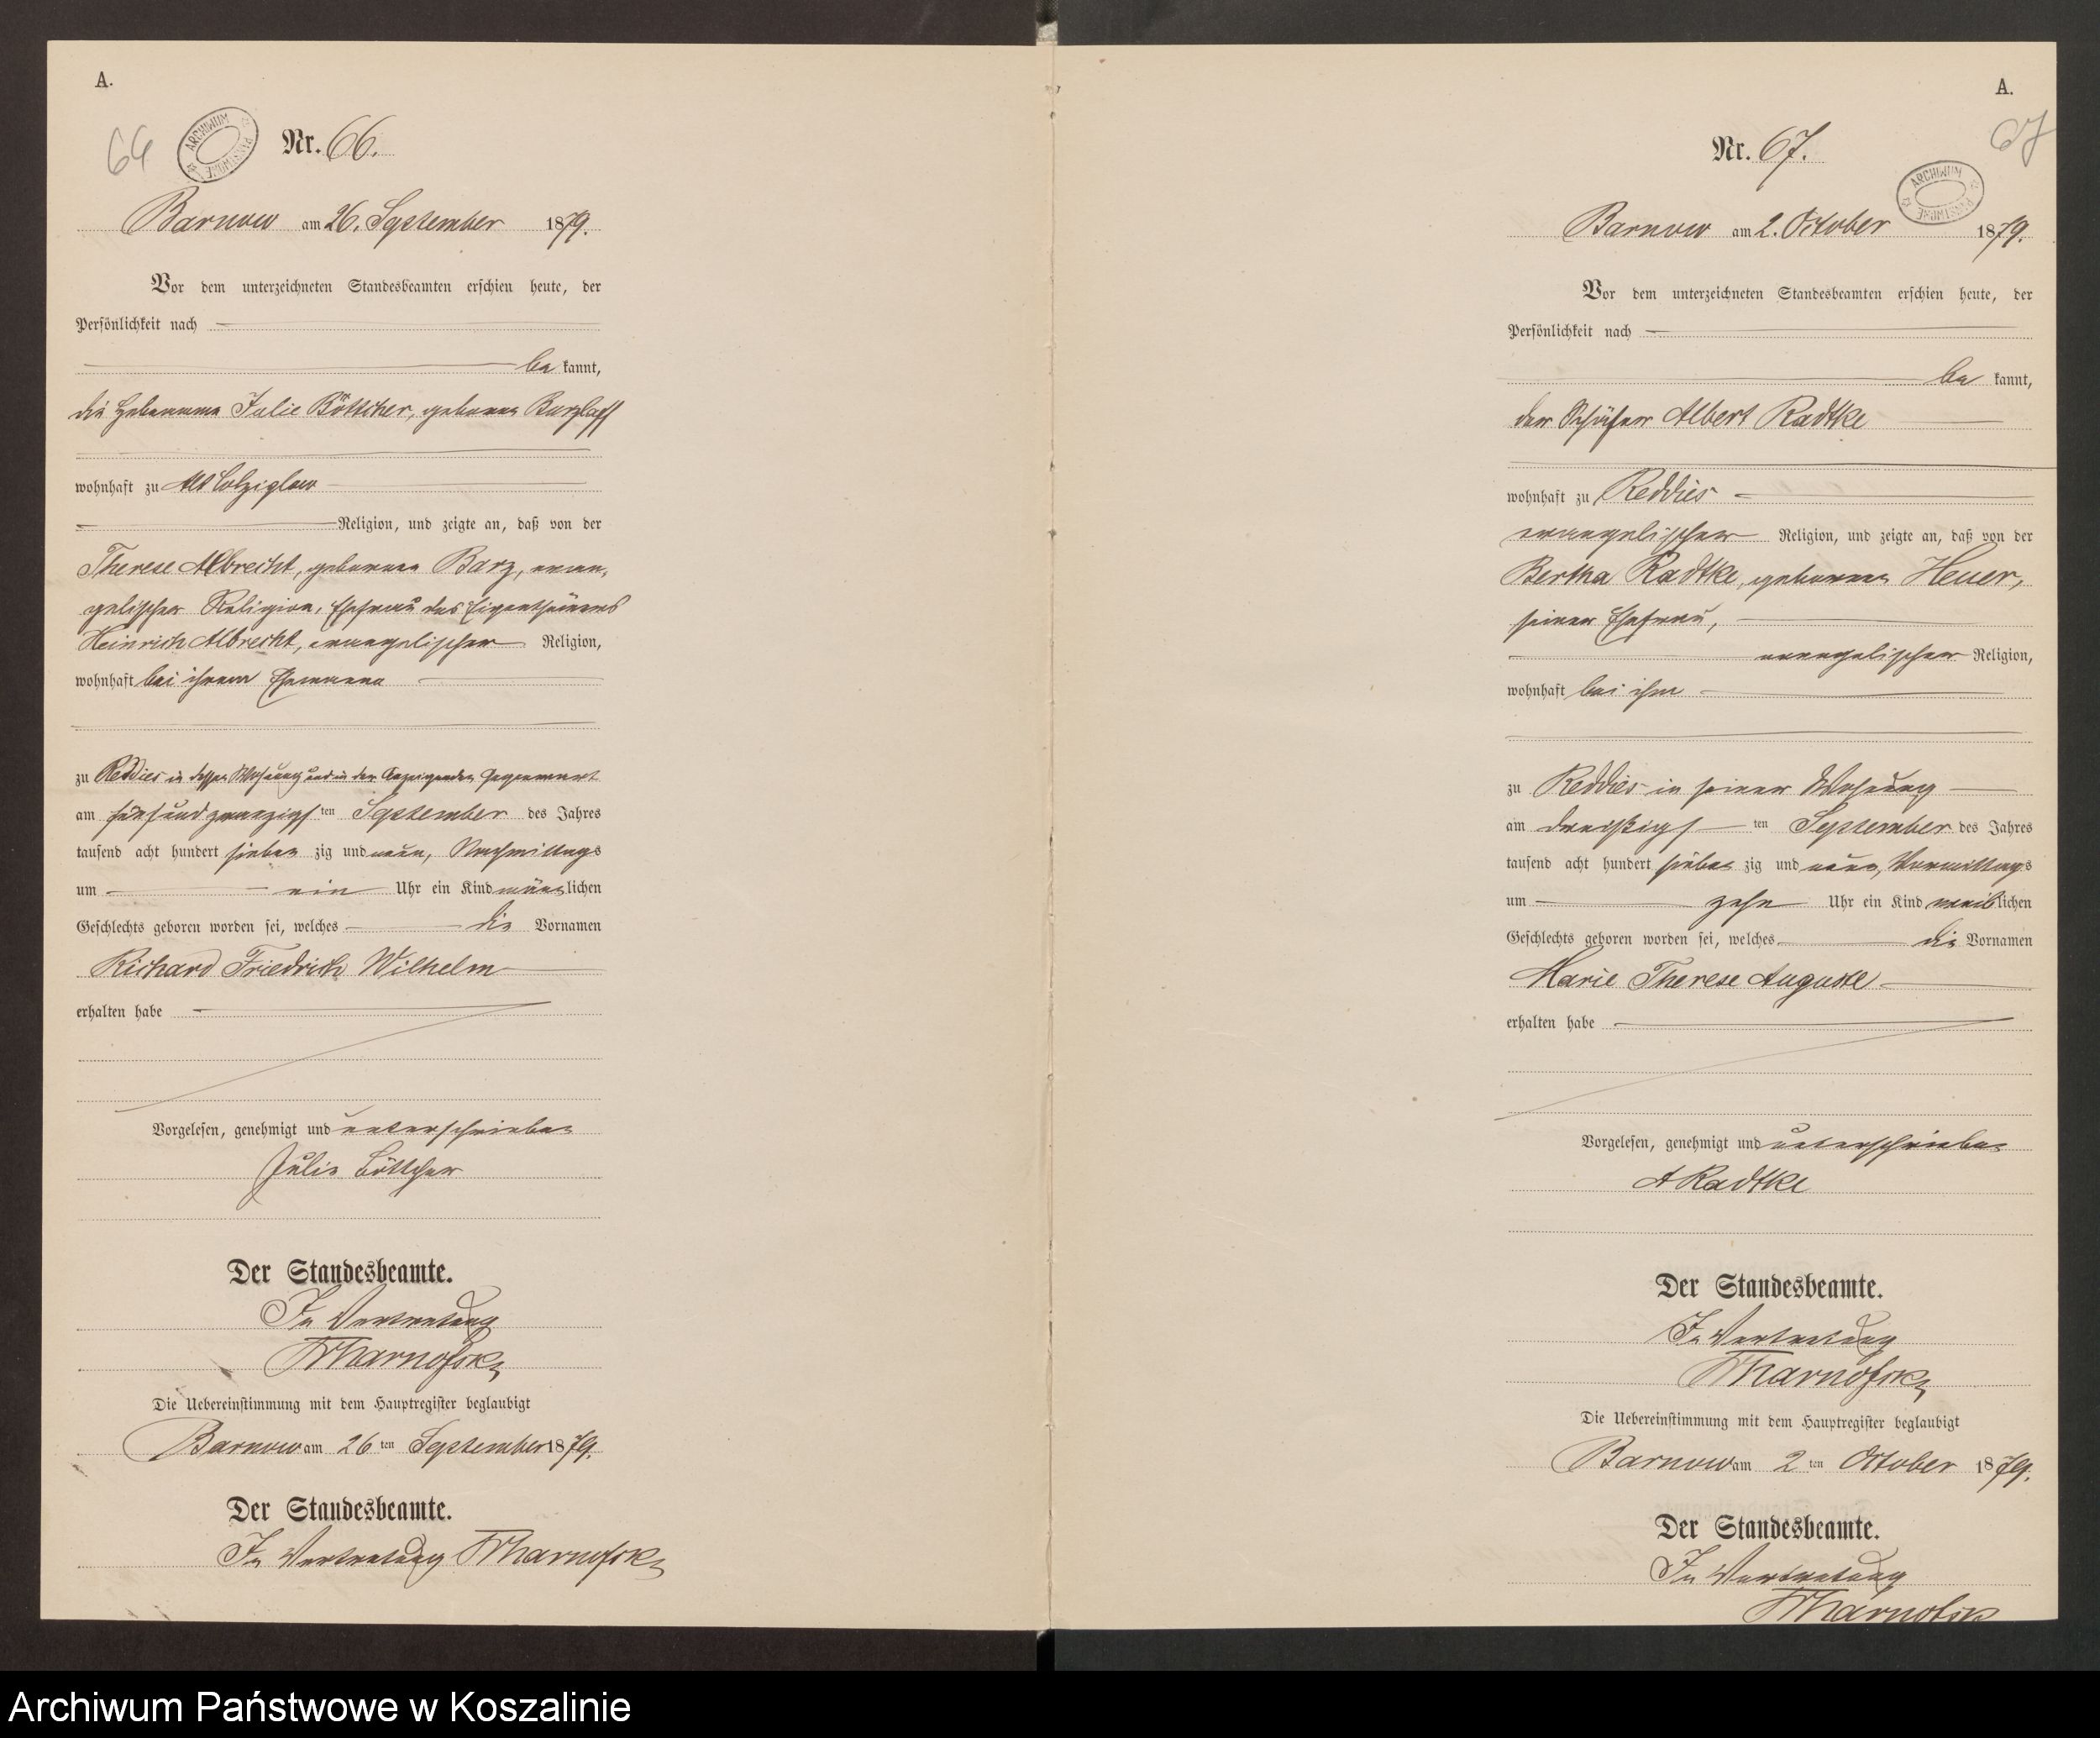 A.
66
ARCHIWUM PAŃSTWOWE
Nr. 66.
Barnow am 26. September 1879.
Vor dem unterzeichneten Standesbeamten erschien heute, der
Persönlichkeit nach
be kannt,
die Hebamme Julie Böttcher, geborene Barzlaff
wohnhaft zu Alt Colziglow
Religion, und zeigte an, daß von der
Therese Albrecht, geborenen Barz, evan-
gelischer Religion, Ehefrau des Eigenthümers
Heinrich Albrecht, evangelischer Religion,
wohnhaft bei ihrem Ehemanne
zu Reddies in dessen Wohnung und in der Anzeigenden Gegenwart
am fünfundzwanzigsten September des Jahres
tausend acht hundert sieben zig und neun, Nachmittags
um ein Uhr ein Kind männlichen
Geschlechts geboren worden sei, welches die Vornamen
Richard Friedrich Wilhelm
erhalten habe
Vorgelesen, genehmigt und unterschrieben
Julie Böttcher
Der Standesbeamte.
In Vertretung
Die Uebereinstimmung mit dem Hauptregister beglaubigt
Barnow am 26ten September 1879.
Der Standesbeamte.
In Vertretung
A.
67
ARCHIWUM PAŃSTWOWE
Nr. 67.
Barnow am 2. October 1879.
Vor dem unterzeichneten Standesbeamten erschien heute, der
Persönlichkeit nach
be kannt,
der Schäfer Albert Radtke
wohnhaft zu Reddies
evangelischer Religion, und zeigte an, daß von der
Bertha Radtke, geborenen Heuer,
seiner Ehefrau,
evangelischer Religion,
wohnhaft bei ihm
zu Reddies in seiner Wohnung
am dreißigsten September des Jahres
tausend acht hundert sieben zig und neun, Vormittags
um zehn Uhr ein Kind weiblichen
Geschlechts geboren worden sei, welches die Vornamen
Marie Therese Auguste
erhalten habe
Vorgelesen, genehmigt und unterschrieben
A Radtke
Der Standesbeamte.
In Vertretung
Die Uebereinstimmung mit dem Hauptregister beglaubigt
Barnow am 2ten October 1879.
Der Standesbeamte.
In Vertretung
Archiwum Państwowe w Koszalinie